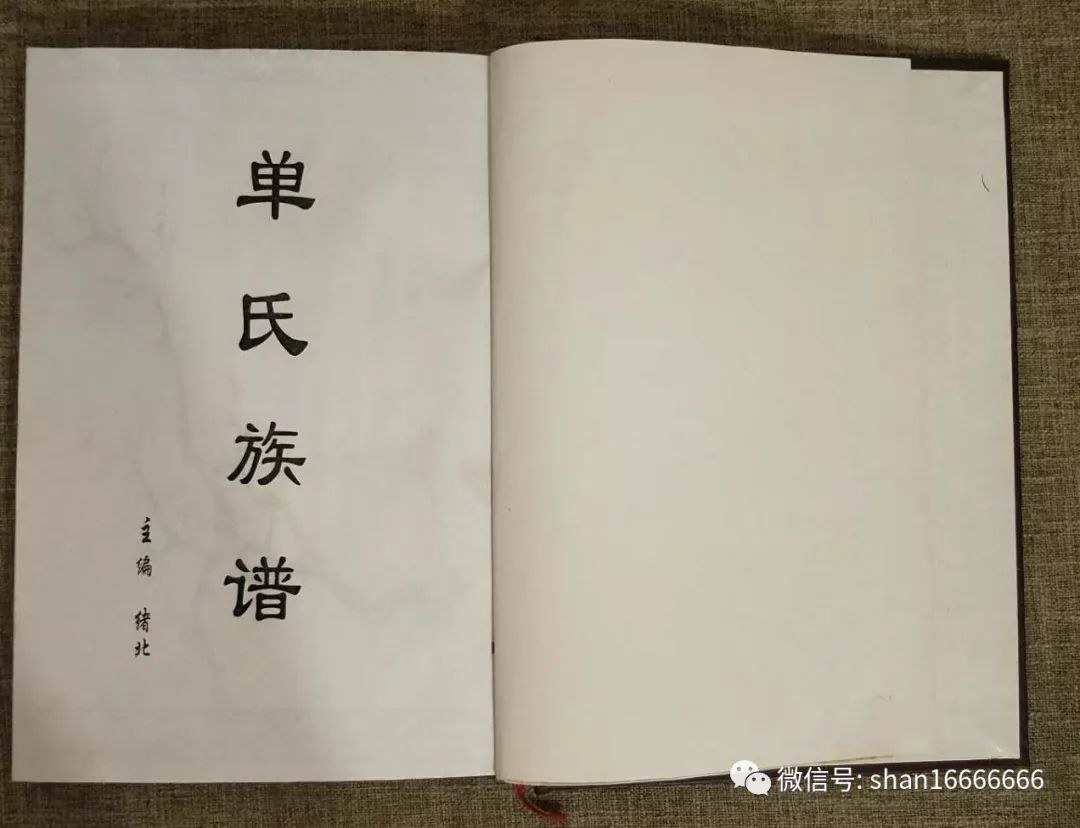 单氏族谱
主编 绪北
微信号: shan16666666